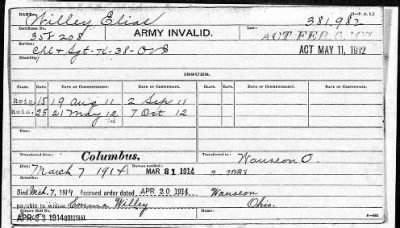 NAME: Willey Elias 381,982
Certificate No. 358208 ARMY INVALID. ACT FEB. 6, '07
Crl + Sgt - K - 38 - O V I ACT MAY 11, 1912
Disability:
ISSUES.
CLASS. RATE. DATE OF CERTIFICATE. CLASS. RATE. DATE OF CERTIFICATE. CLASS. RATE. DATE OF CERTIFICATE.
Reis. 15 19 Aug 11 2 Sep 11
Reis. 25 21 May 12 7 Oct 12
Transferred from Columbus, Transferred to Wauseon O.
Died March 7 1914 MAR 31 1914
Died Mch. 7, 1914 Accrued order dated, APR 20 1914 Wauseon
payable to widow Emma Willey Ohio.
APR 23 1914